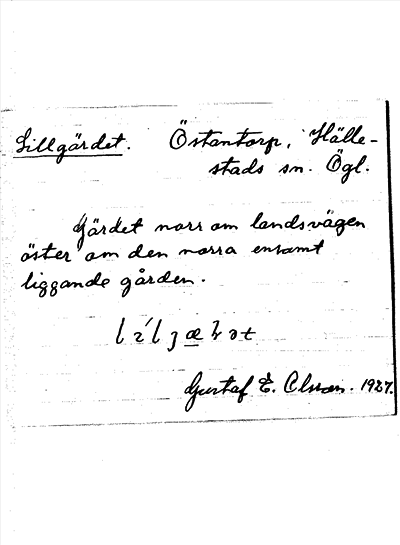 Lillgärdet. Östantorp, Hälle-
stads sn. Ögl.
Gärdet norr om landsvägen
öster om den norra ensamt
liggande gården.
Gustaf E. Olsson. 1927.